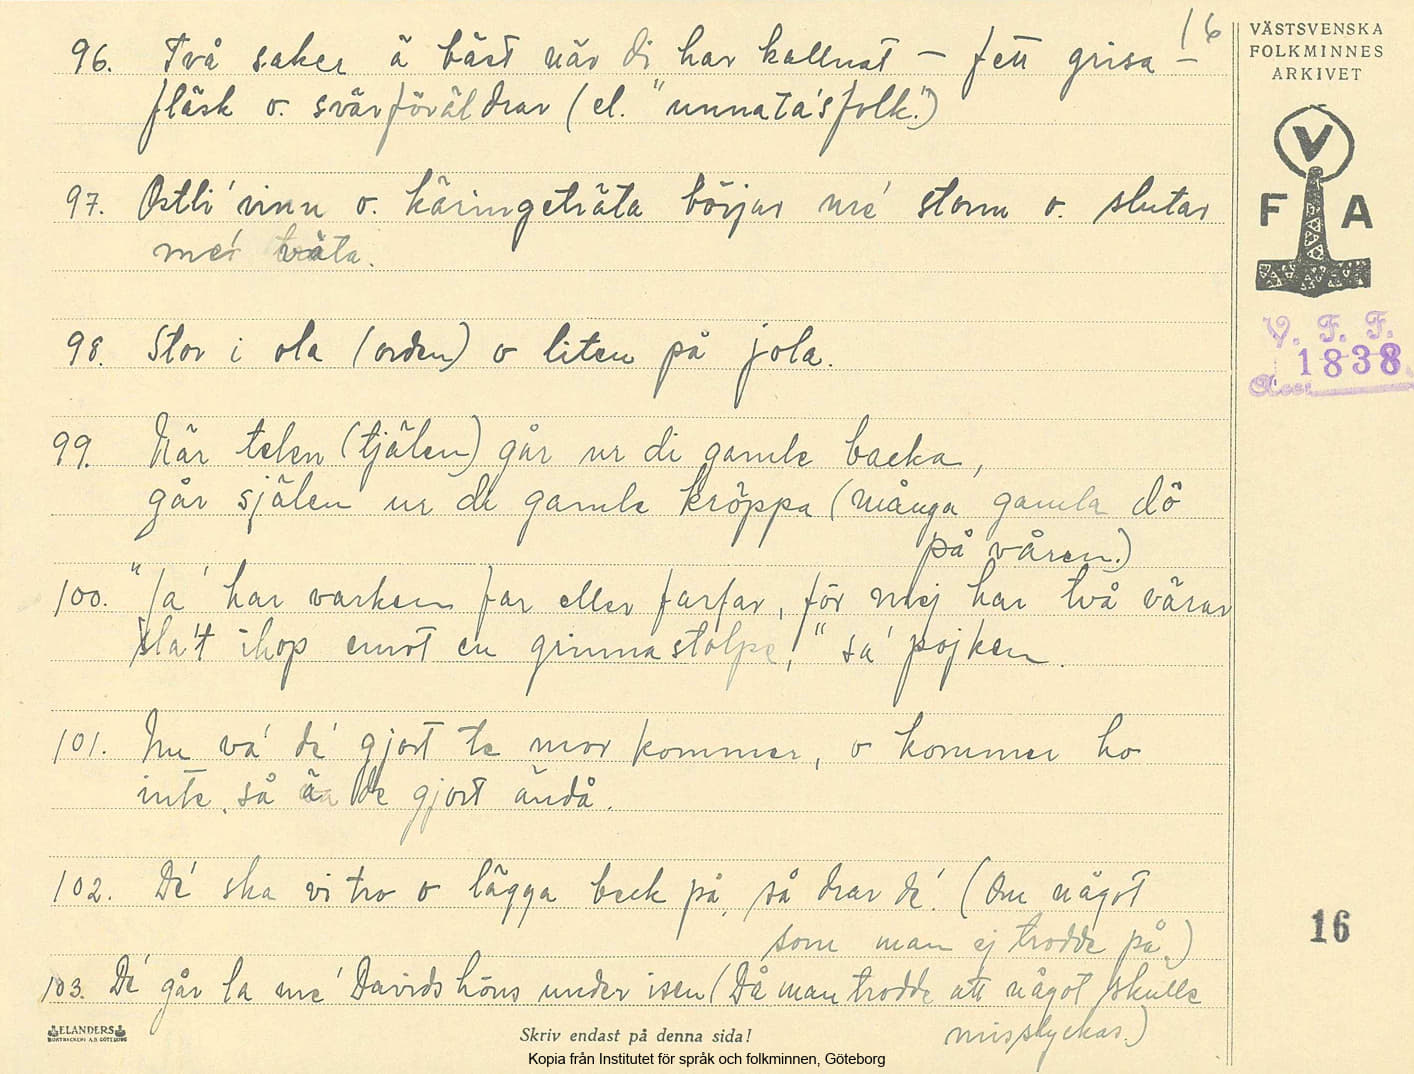 16
VÄSTSVENSKA
FOLKMINNES
ARKIVET
V
F A
V. F. F.
1838
96. Två saker ä bäst när di har kallnat – fett grisa-
fläsk o. svärföräldrar (el. "unnatásfolk".)
97. Ostli' vinn o. käringeträta börjar me' storm o. slutar
me' väta.
98. Stor i ola (orden) o liten på jola.
99. När telen (tjälen) går ur di gamle backa,
går själen ur di gamle kröppa (många gamla dö
på våren.)
100. "Ja' har varken far eller farfar, för mej har två värar
sla't ihop emot en grinnastolpe," sa' pojken.
101. Nu va' de' gjort te mor kommer, o kommer ho
inte, så ä de gjort ändå.
102. De' ska vi tro o lägga beck på, så drar de'. (Om något
som man ej trodde på.)
103. De' går la me' Davids höns under isen (Då man trodde att något skulle
misslyckas.)
16
ELANDERS
BOKTRYCKERI A.B. GÖTEBORG
Skriv endast på denna sida!
Kopia från Institutet för språk och folkminnen, Göteborg